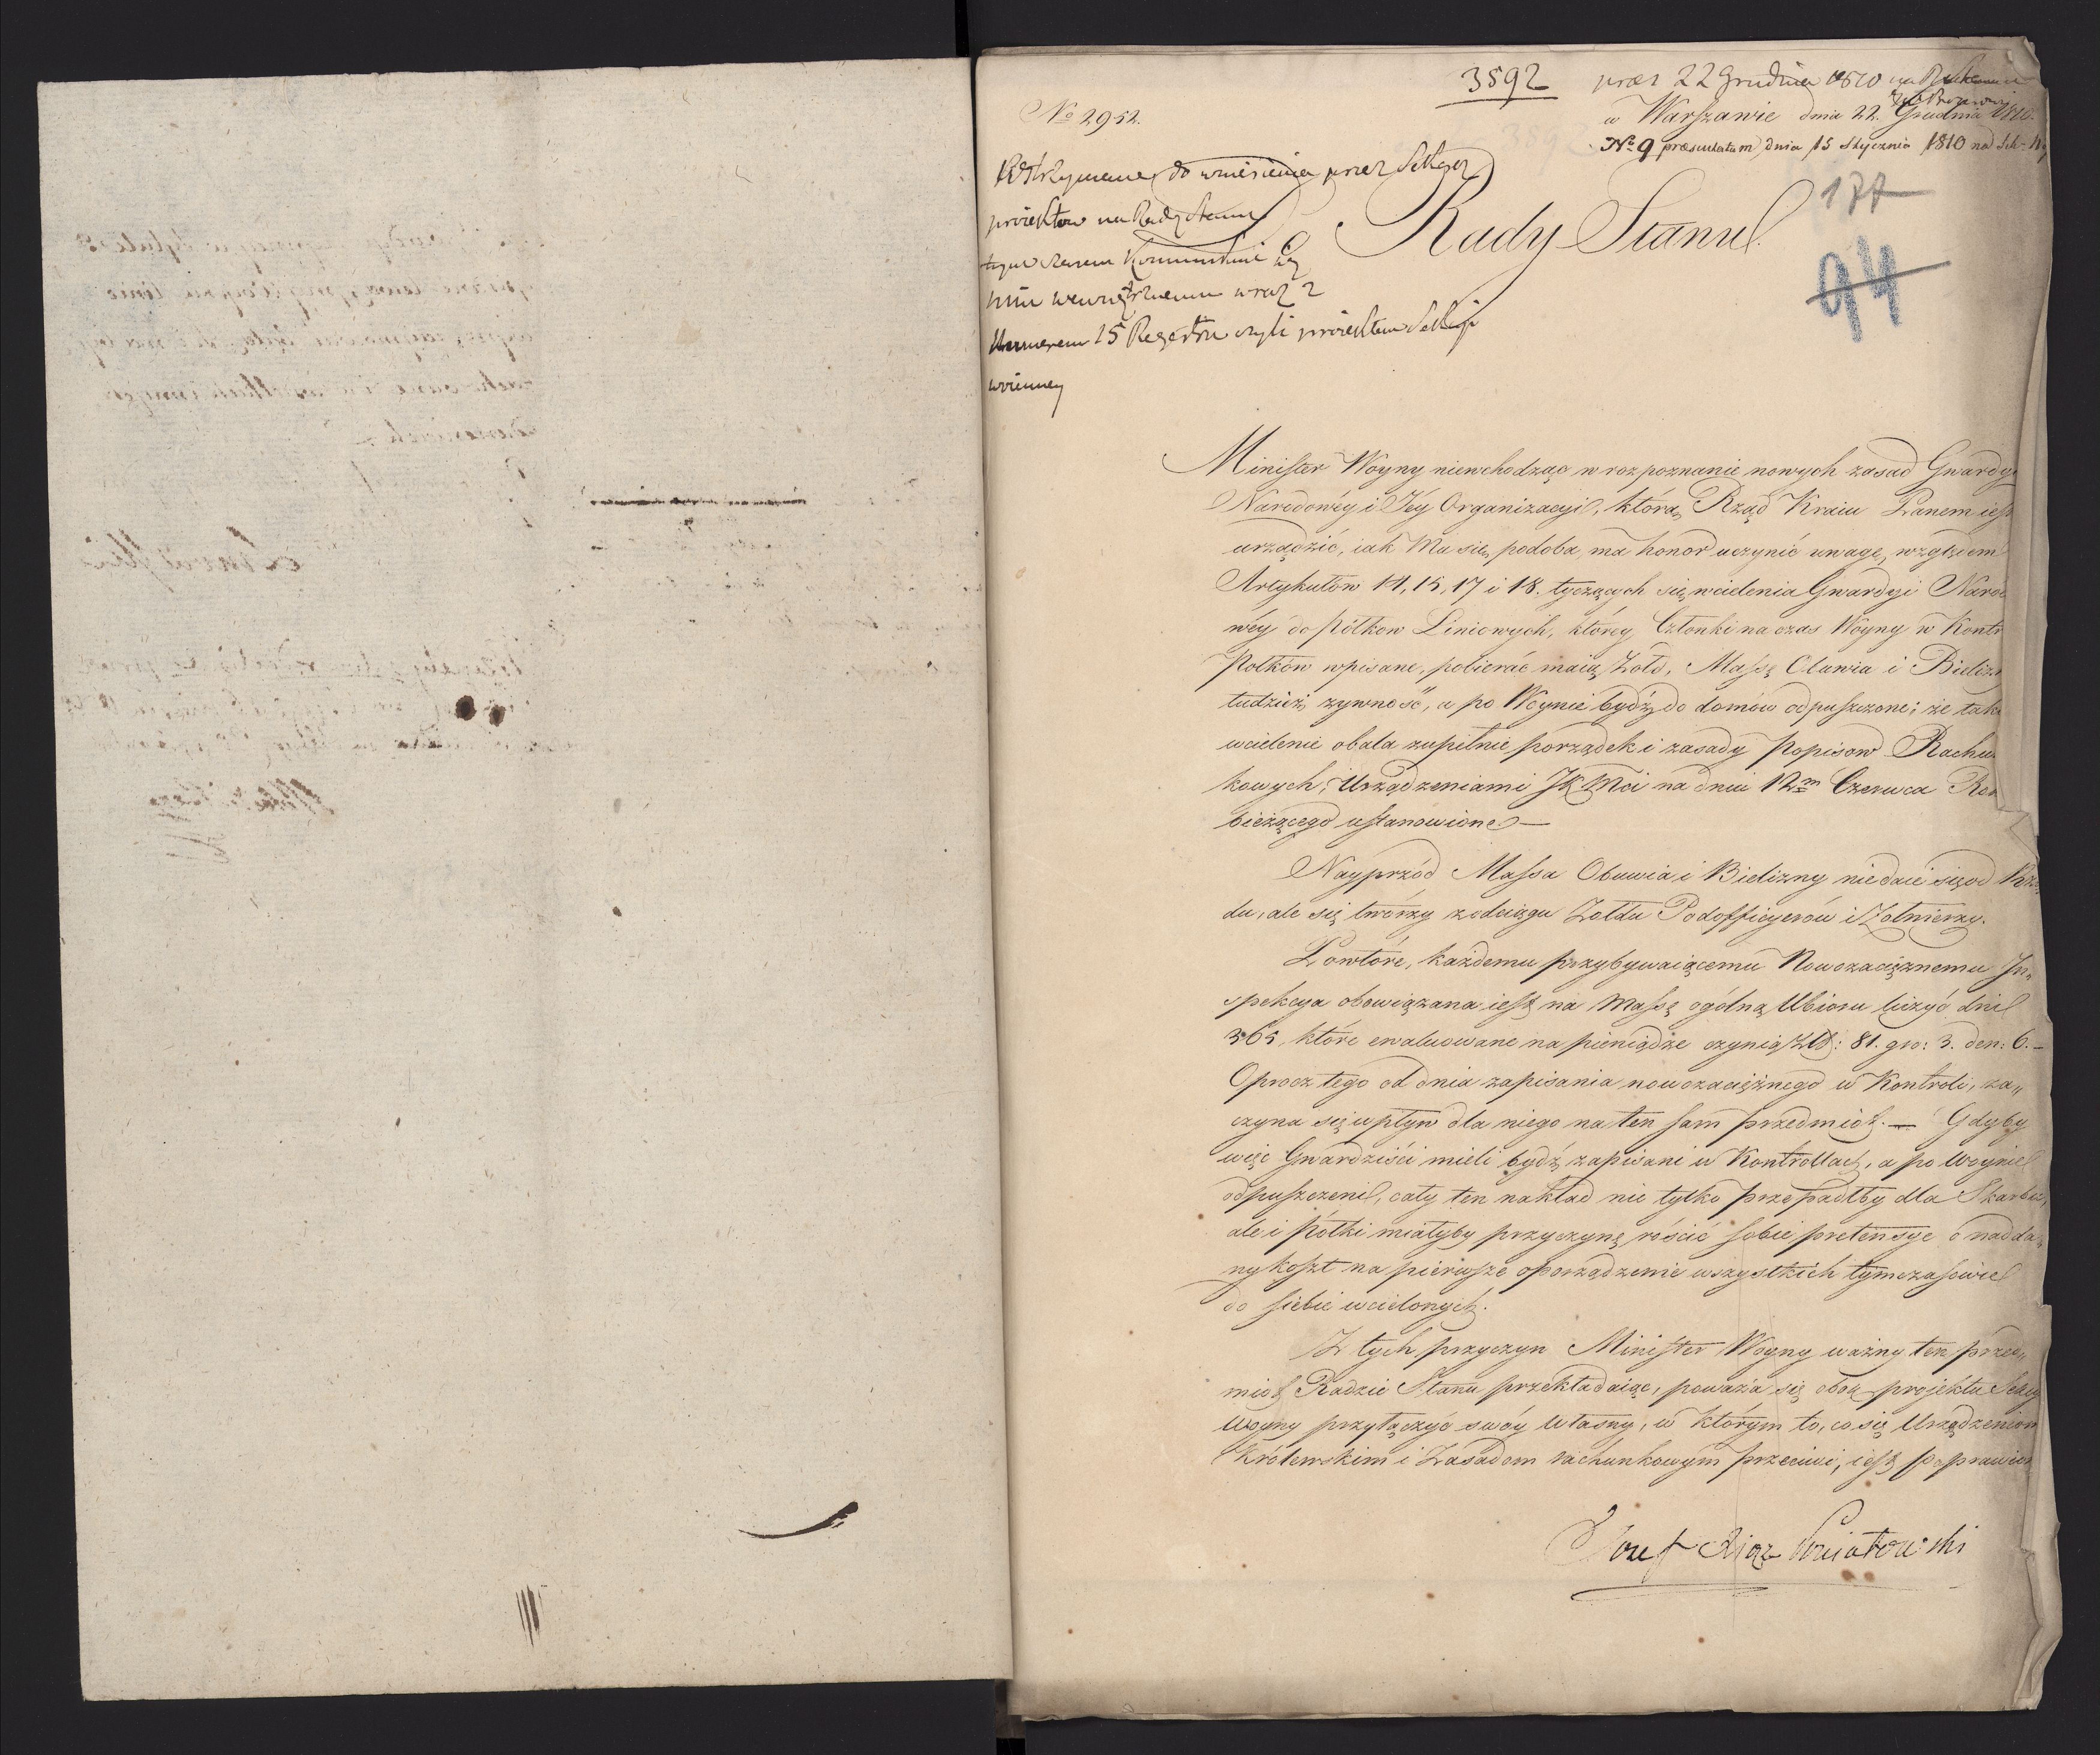 3592
præs 22 Grudnia 1810 na
No 2952.
w Warszawie dnia 22. Grudnia 1810.
No 9 præsentatum dnia 15 Stycznia 1810 na
137
94
do wniesienia przez
proiektow na Radę Stanu
tym czasem
wraz z
Numerem 15 czyli proiektem Sekcyi
woienney
Rady Stanu.
Minister Woyny niewchodząc w rozpoznanie nowych zasad Gwardyi
Narodowéy i Jéy Organizacyi, którą Rząd Kraiu Panem iest
urządzić, iak Mu się podoba, ma honor uczynić uwagę, względem
Artykułów 14, 15, 17 i 18. tyczących się wcielenia Gwardyi Narodo
wéy do Półkow Liniowych, któréy Członki na czas Woyny w Kontr
Półków wpisane, pobierać maią Żołd, Massę Obuwia i Bielizn
tudzież żywność, a po Woynie bydź do domów odpuszczone; że takie
wcielenie obala zupełnie porządek i zasady Popisow Rachun
kowych, Urządzeniami JKMci na dniu 12m Czerwca Rok
bieżącego ustanowione.—
Nayprzód Massa Obuwia i Bielizny nie daie się od Rzą
du, ale się tworzy z odciągu Żołdu Podofficyerów i Żołnierzy.
Powtóre, każdemu przybywaiącemu Nowozaciężnemu In„
spekcya obowiązana iest na Massę ogólną Ubioru liczyć dni
365, które ewaluowane na pieniądze czynią Złł: 81. gro: 3. den: 6.—
Oprocz tego od dnia zapisania nowozaciężnego w Kontroli, za„
czyna się upływ dla niego na ten sam przedmiot.— Gdyby
więc Gwardziści mieli bydź zapisani w Kontrollach, a po Woynie
odpuszczeni, cały ten nakład nie tylko przepadłby dla Skarbu,
ale i Półki miałyby przyczynę rościć sobie pretensye o nadda„
ny koszt na pierwsze oporządzenie wszystkich tymczasowie
do siebie wcielonych.
Z tych przyczyn Minister Woyny ważny ten przed„
miot Radzie Stanu przekładaiąc, poważa się obok projektu Sekcyi
Woyny przyłączyć swóy własny, w którym to, co się Urządzeniom
Królewskim i Zasadom rachunkowym przeciwi, iest poprawion
Jozef Xiąże Poniatowski